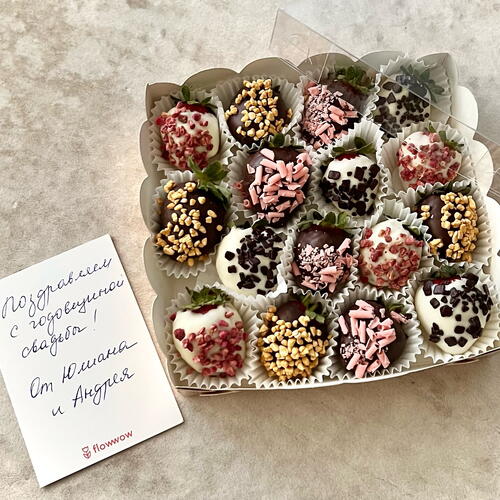 Поздравляем
с годовщиной
свадьбы!
От Юлиана
и Андрея
flowwow